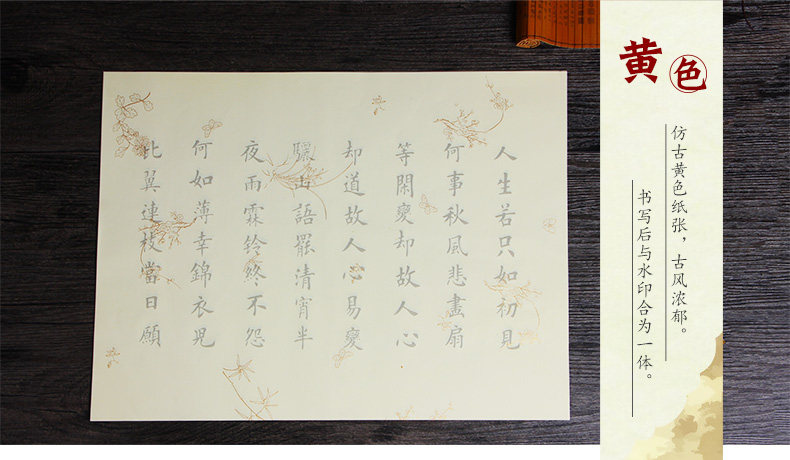 黄色
仿古黄色纸张，古风浓郁。
书写后与水印合为一体。
人生若只如初見
何事秋風悲畫扇
等閑變却故人心
却道故人心易變
驪山語罷清宵半
夜雨霖鈴終不怨
何如薄幸錦衣兒
比翼連枝當日願